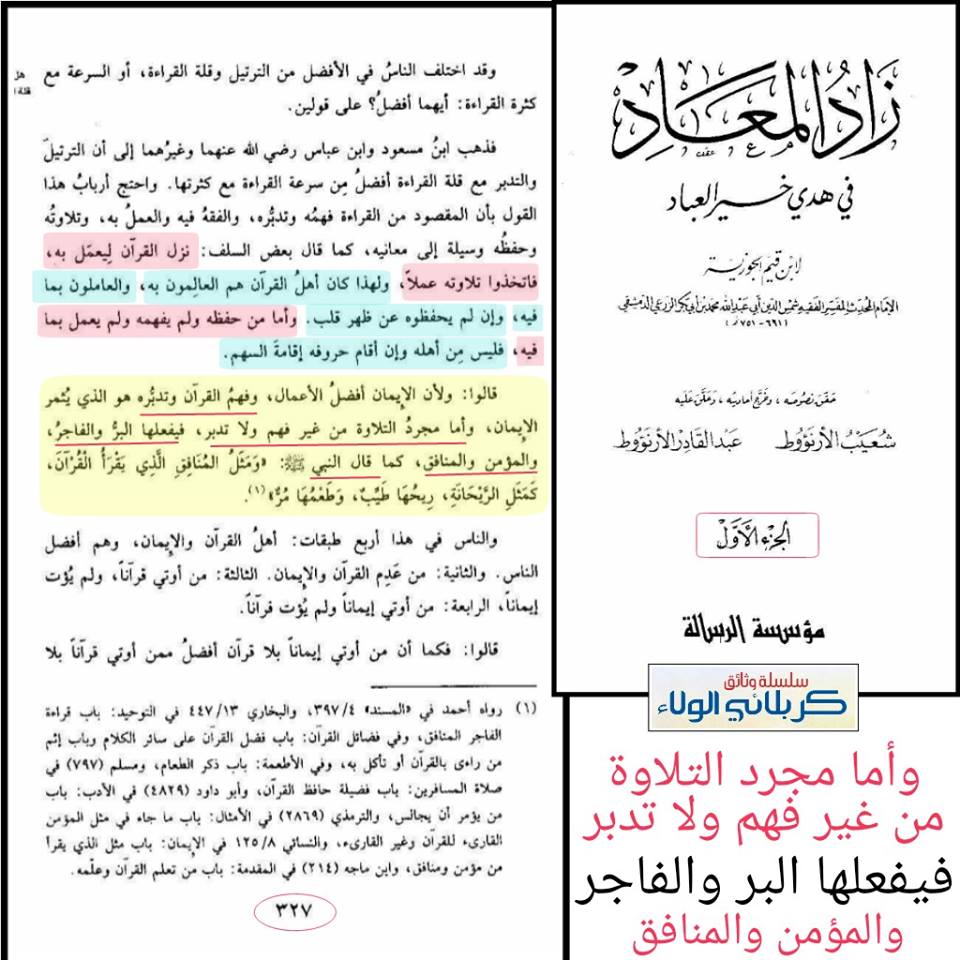 زَادُ المَعَاد
في هدي خير العباد
لابن قيم الجوزية
الإمام المحدث المفسر الفقيه شمس الدين أبي عبد الله محمد بن أبي بكر الزرعي الدمشقي
(٦٩١ - ٧٥١ هـ)
حقق نصوصه ، وخرج أحاديثه ، وعلق عليه
شعيب الأرنؤوط عبد القادر الأرنؤوط
الجزء الأول
مؤسسة الرسالة
وقد اختلف الناسُ في الأفضل من الترتيل وقلة القراءة، أو السرعة مع
كثرة القراءة: أيهما أفضلُ؟ على قولين.
فذهب ابنُ مسعود وابن عباس رضي الله عنهما وغيرُهما إلى أن الترتيلَ
والتدبر مع قلة القراءة أفضلُ مِن سرعة القراءة مع كثرتها. واحتج أربابُ هذا
القول بأن المقصود من القراءة فهمُه وتدبُّره، والفقهُ فيه والعملُ به، وتلاوتُه
وحفظُه وسيلة إلى معانيه، كما قال بعض السلف: نزل القرآن لِيعمَل به،
فاتخذوا تلاوته عملاً، ولهذا كان أهلُ القرآن هم العالِمون به، والعاملون بما
فيه، وإن لم يحفظوه عن ظهر قلب. وأما من حفظه ولم يفهمه ولم يعمل بما
فيه، فليس مِن أهله وإن أقام حروفه إقامةَ السهم.
قالوا: ولأن الإيمان أفضلُ الأعمال، وفهمُ القرآن وتدبُّره هو الذي يُثمر
الإيمان، وأما مجردُ التلاوة من غير فهم ولا تدبر، فيفعلها البرُّ والفاجرُ،
والمؤمن والمنافق، كما قال النبي ﷺ: «وَمَثَلُ المُنَافِقِ الَّذِي يَقْرَأُ الْقُرْآنَ،
كَمَثَلِ الرَّيْحَانَةِ، رِيحُهَا طَيِّبٌ، وَطَعْمُهَا مُرٌّ»(١).
والناس في هذا أربع طبقات: أهلُ القرآن والإيمان، وهم أفضل
الناس. والثانية: من عَدِم القرآن والإيمان. الثالثة: من أوتي قرآناً، ولم يُؤت
إيماناً، الرابعة: من أوتي إيماناً ولم يُؤت قرآناً.
قالوا: فكما أن من أوتي إيماناً بلا قرآن أفضلُ ممن أوتي قرآناً بلا
(١) رواه أحمد في «المسند» ٣٩٧/٤، والبخاري ٤٤٧/١٣ في التوحيد: باب قراءة
الفاجر المنافق، وفي فضائل القرآن: باب فضل القرآن على سائر الكلام وباب إثم
من راءى بالقرآن أو تأكل به، وفي الأطعمة: باب ذكر الطعام، ومسلم (٧٩٧) في
صلاة المسافرين: باب فضيلة حافظ القرآن، وأبو داود (٤٨٢٩) في الأدب: باب
من يؤمر أن يجالس، والترمذي (٢٨٦٩) في الأمثال: باب ما جاء في مثل المؤمن
القارىء للقرآن وغير القارىء، والنسائي ١٢٥/٨ في الإيمان: باب مثل الذي يقرأ
من مؤمن ومنافق، وابن ماجه (٢١٤) في المقدمة: باب من تعلم القرآن وعلّمه.
٣٢٧
سلسلة وثائق
كربلائي الولاء
وأما مجرد التلاوة
من غير فهم ولا تدبر
فيفعلها البر والفاجر
والمؤمن والمنافق